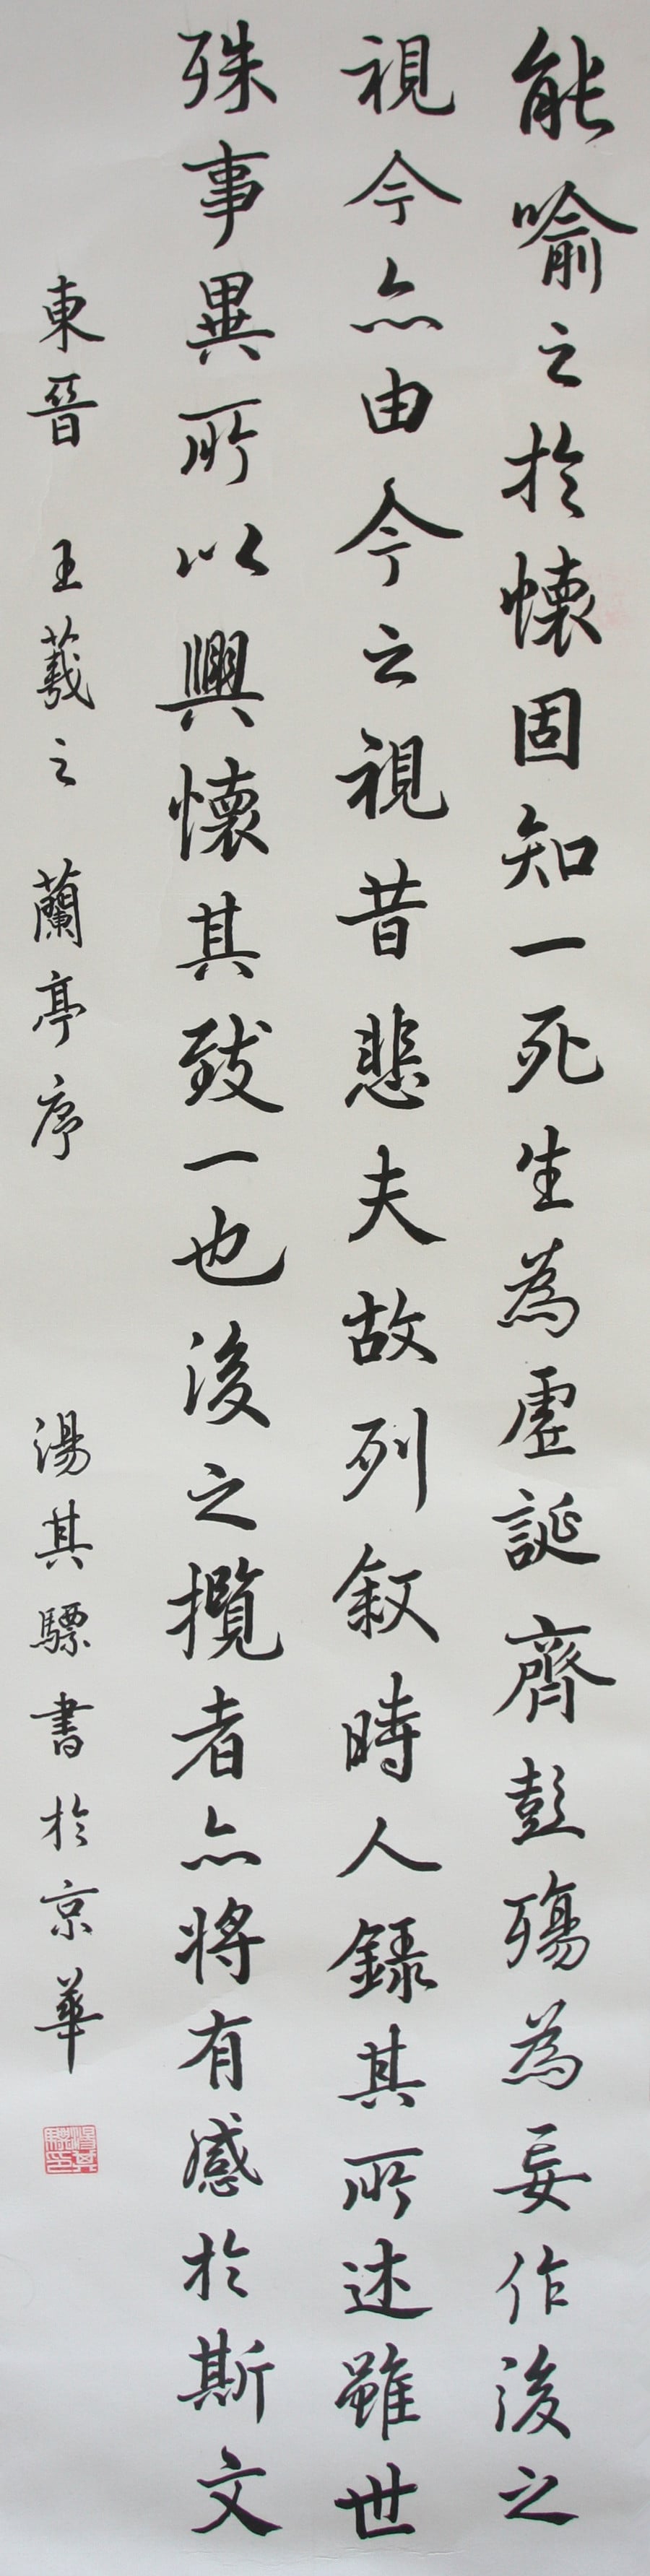 能喻之於懷固知一死生為虛誕齊彭殤為妄作後之
視今亦由今之視昔悲夫故列敘時人錄其所述雖世
殊事異所以興懷其致一也後之攬者亦將有感於斯文
東晉 王羲之 蘭亭序 湯其驃書於京華